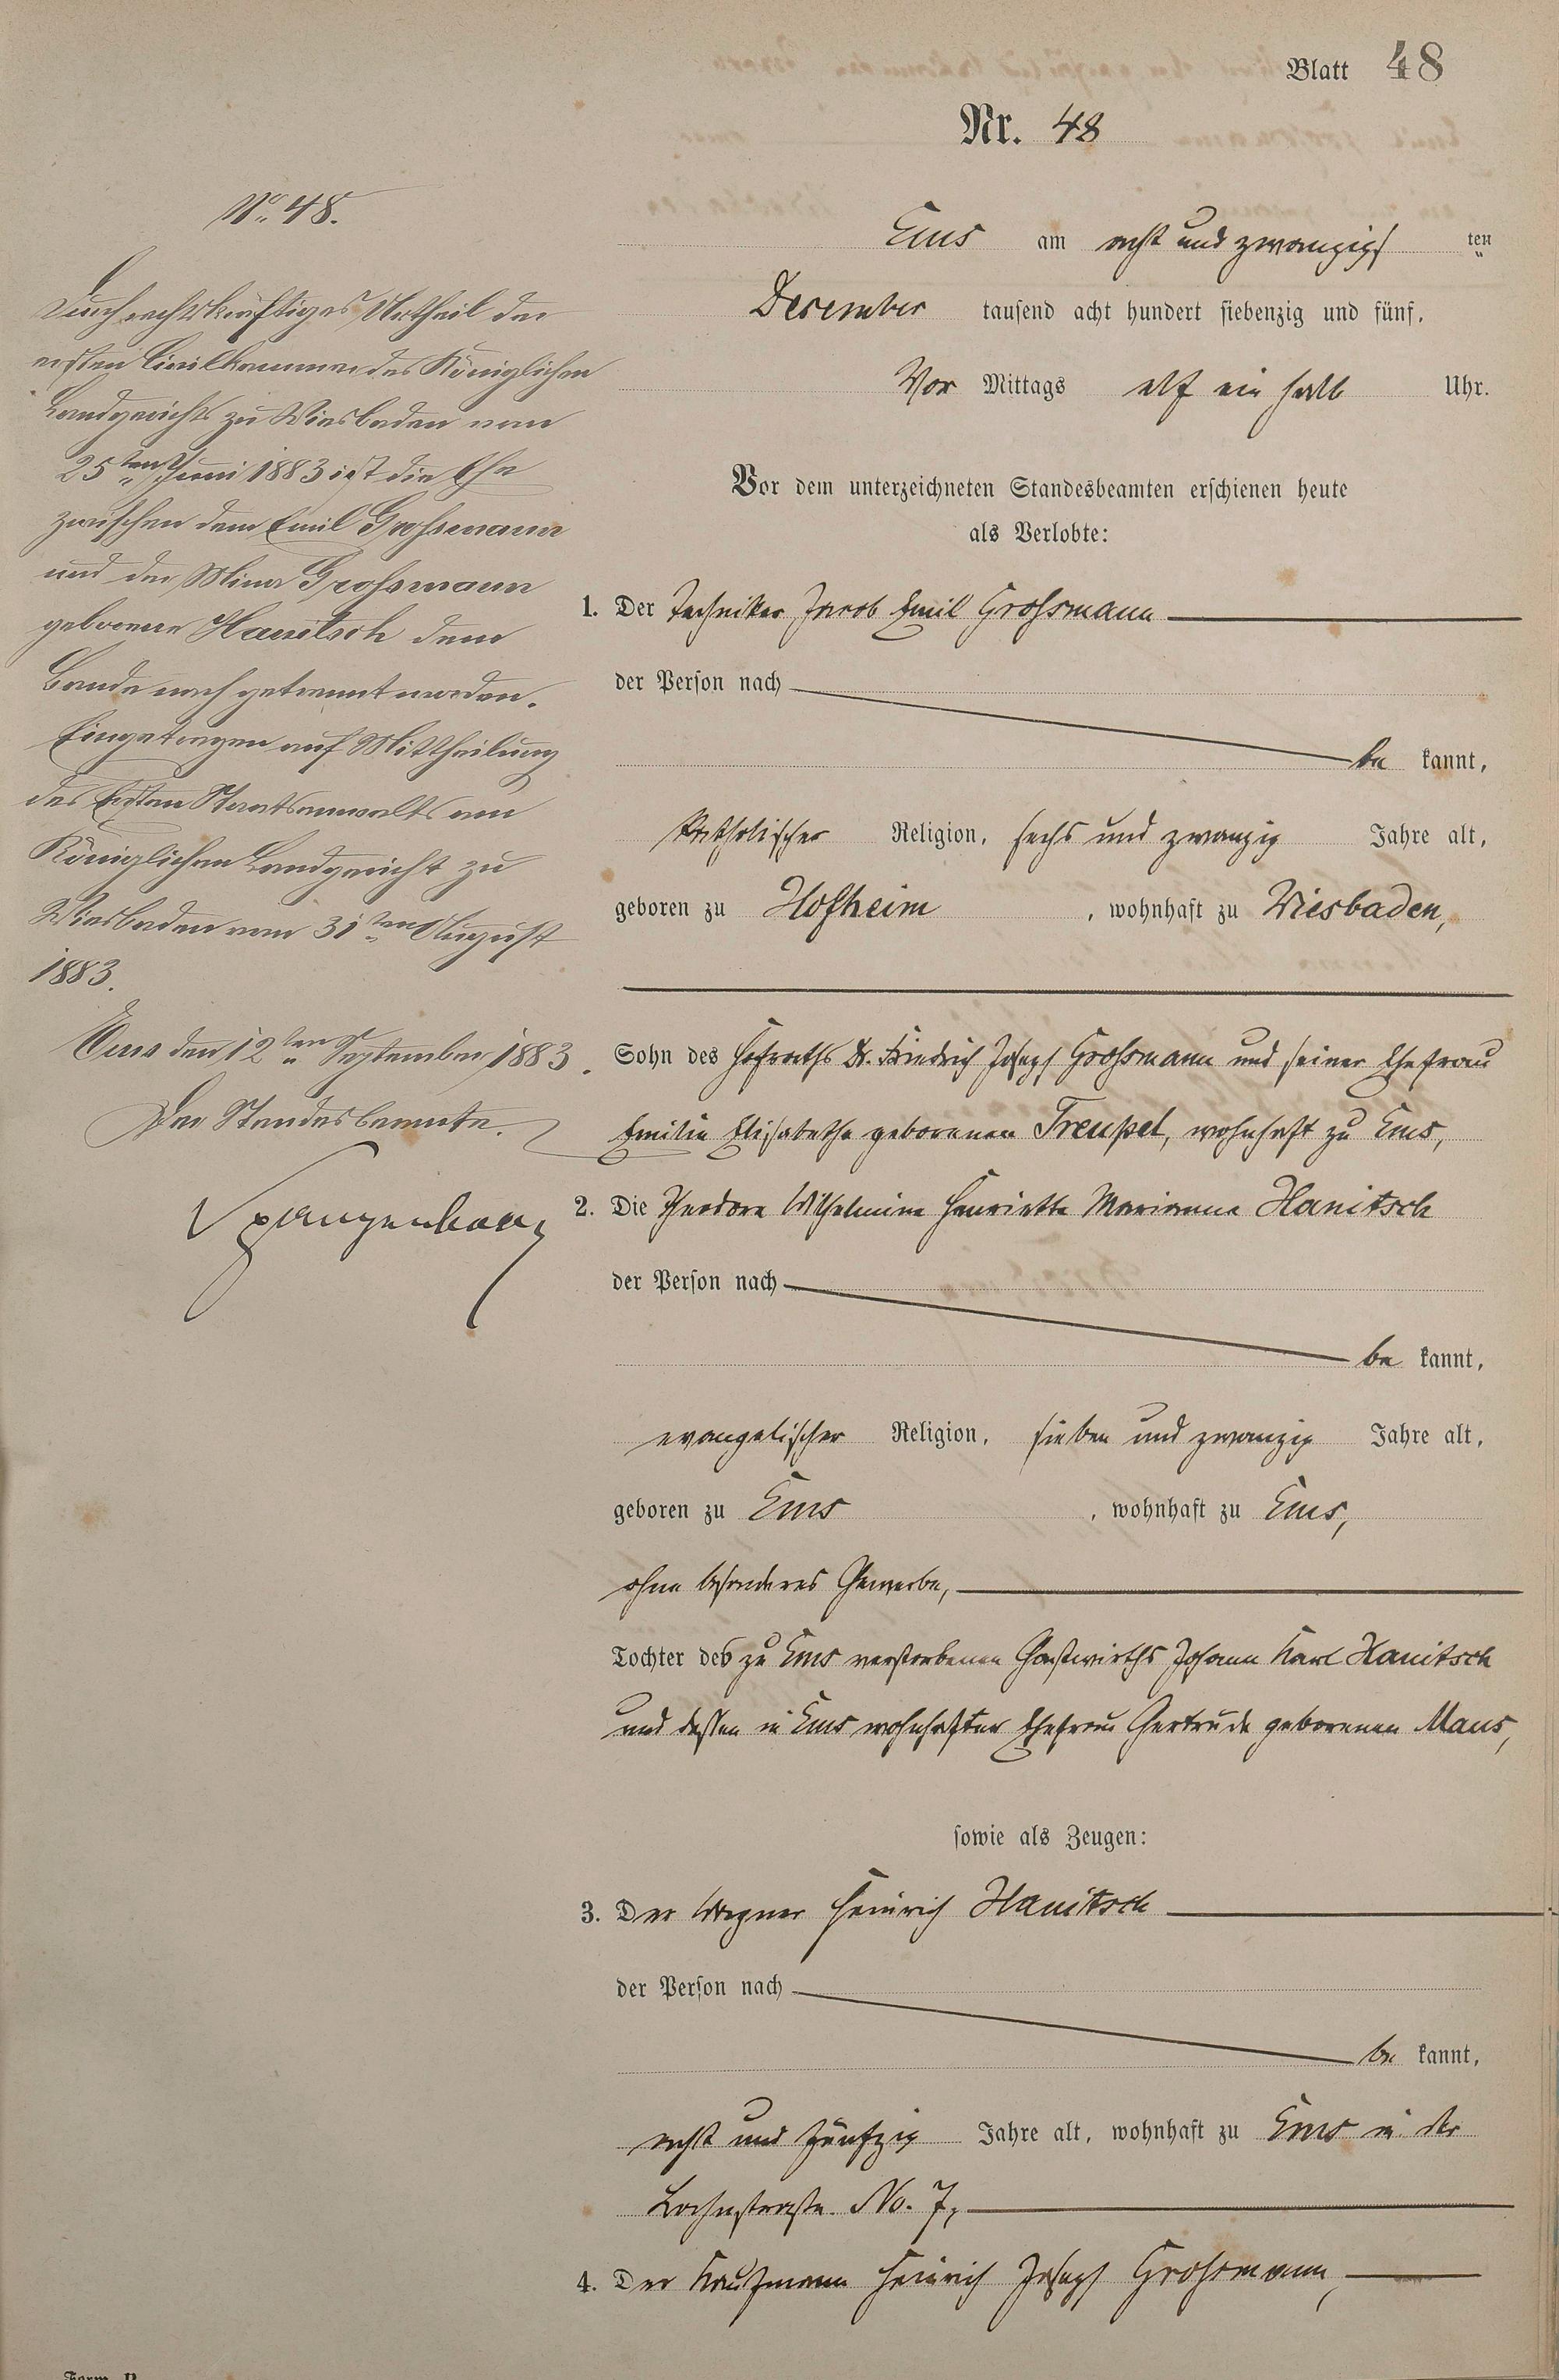 Blatt 48
Nr. 48
Ems am acht und zwanzigsten
December tausend acht hundert siebenzig und fünf,
Vor Mittags elf ein halb Uhr.
Vor dem unterzeichneten Standesbeamten erschienen heute
als Verlobte:
1. Der Techniker Jacob Emil Großmann
der Person nach
be kannt,
katholischer Religion, sechs und zwanzig Jahre alt,
geboren zu Hofheim, wohnhaft zu Wiesbaden,
Sohn des Hofraths Dr. Friedrich Joseph Großmann und seiner Ehefrau
Emilie Elisabethe geborenen Treupel, wohnhaft zu Ems,
2. Die Theodore Wilhelmine Henriette Marianne Hanitsch
der Person nach
be kannt,
evangelischer Religion, sieben und zwanzig Jahre alt,
geboren zu Ems, wohnhaft zu Ems,
ohne besonderes Gewerbe,
Tochter des zu Ems verstorbenen Gastwirths Johann Karl Hanitsch
und dessen in Ems wohnhafter Ehefrau Gertrude geborenen Maus,
sowie als Zeugen:
3. Der Wagner Heinrich Hanitsch
der Person nach
be kannt,
acht und fünfzig Jahre alt, wohnhaft zu Ems in der
Lahnstraße No. 7,
4. Der Kaufmann Heinrich Joseph Großmann,
No. 48.
Durch rechtskräftiges Urtheil der
ersten Civilkammer des Königlichen
Landgerichts zu Wiesbaden vom
25ten Juni 1883 ist die Ehe
zwischen dem Emil Großmann
und der Mina Großmann
geborene Hanitsch dem
Bande nach getrennt worden.
Eingetragen auf Mittheilung
des Ersten Staatsanwalts am
Königlichen Landgericht zu
Wiesbaden vom 31ten August
1883.
Ems den 12ten September 1883.
Der Standesbeamte.
Spangenberg
Form.